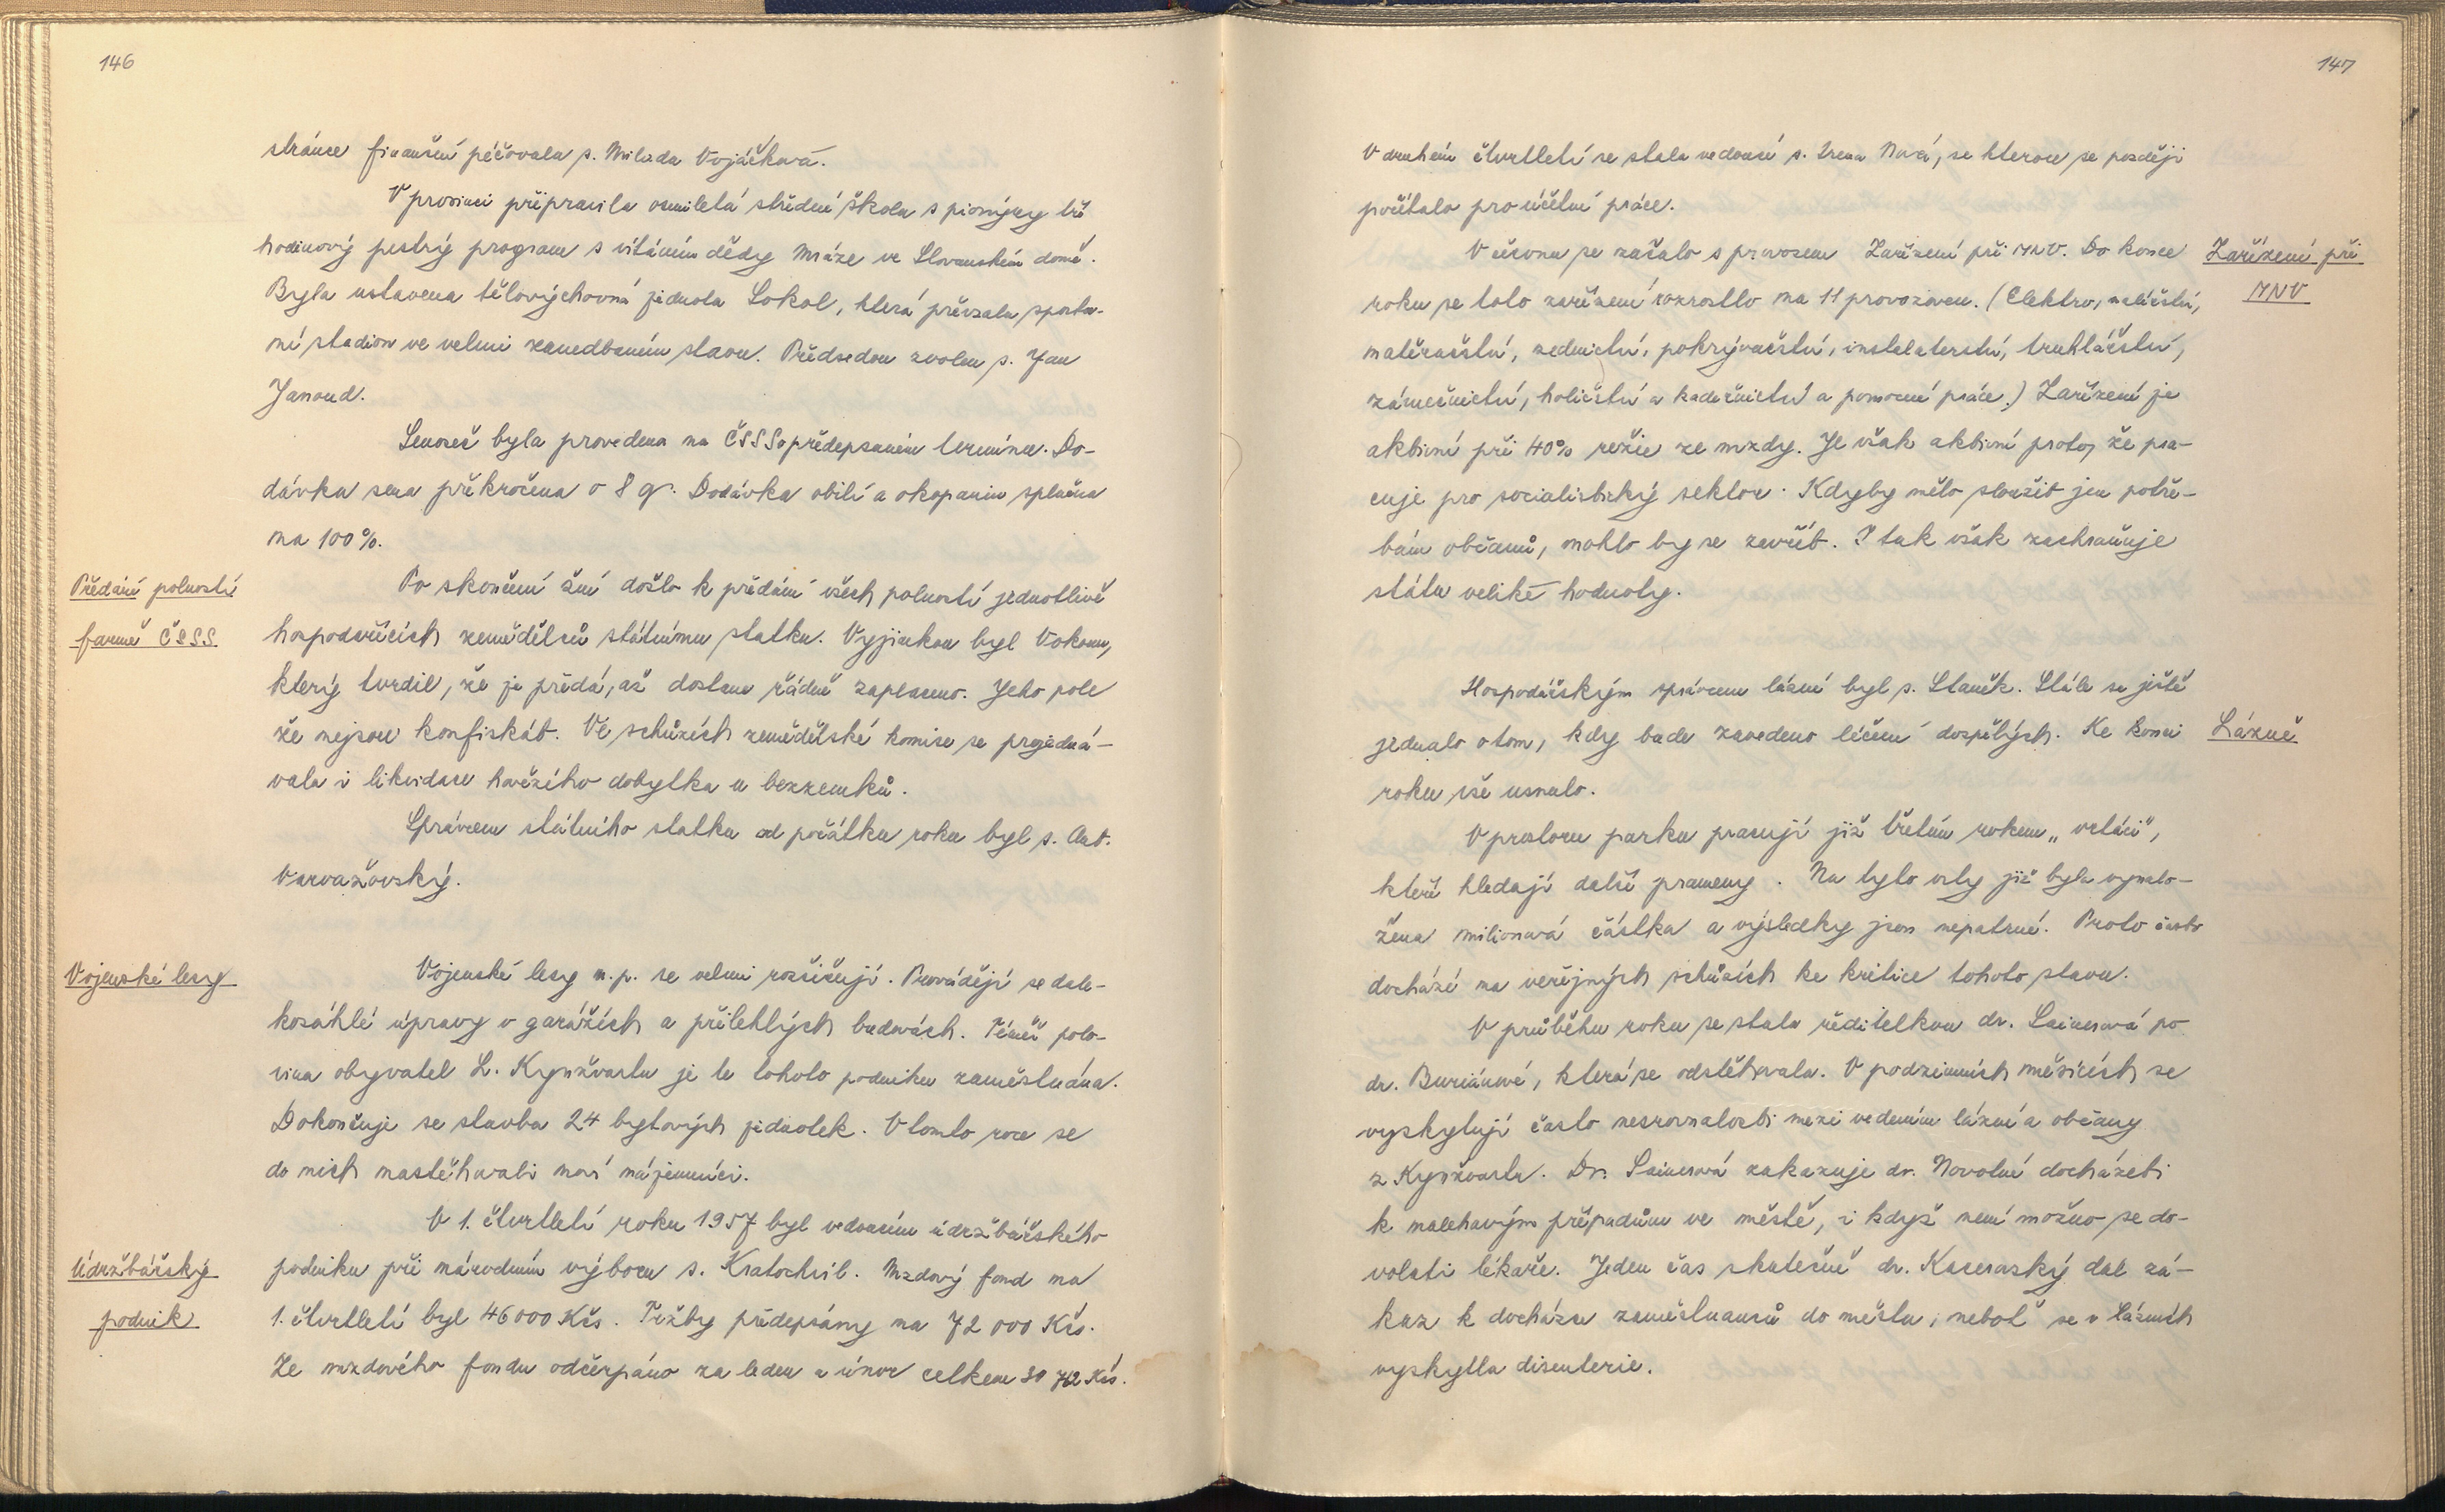 146
stránce finanční péčovala s. Milada Vojáčková.
V prosinci připravila osmiletá střední škola s pionýry tří
hodinový pestrý program s vítáním dědy Mráze ve Slovanském domě.
Byla ustavena tělovýchovná jednota Sokol, která převzala sportov-
ní stadion ve velmi zanedbaném stavu. Předsedou zvolen s. Jan
Janoud.
Senoseč byla provedena na ČSSS o předepsaném termínu. Do-
dávka sena překročena o 8 q. Dodávka obilí a okopanin splněna
na 100%.
Předání polností
farmě ČSSS.
Po skončení žní došlo k předání všech polností jednotlivě
hospodařících zemědělců státnímu statku. Vyjímkou byl Vokoun,
který tvrdil, že je předá, až dostane řádně zaplaceno. Jeho pole
že nejsou konfiskát. Ve schůzích zemědělské komise se projedná-
vala i likvidace hovězího dobytka u bezzemků.
Správcem státního statku od počátku roku byl s. Ant.
Varvažovský.
Vojenské lesy
Vojenské lesy n.p. se velmi rozšiřují. Provádějí se dale-
kosáhlé úpravy v garážích a přilehlých budovách. Téměř polo-
vina obyvatel L. Kynžvartu je u tohoto podniku zaměstnána.
Dokončuje se stavba 24 bytových jednotek. V tomto roce se
do nich nastěhovali noví nájemníci.
Údržbářský
podnik
V 1. čtvrtletí roku 1957 byl vedoucím údržbářského
podniku při národním výboru s. Kratochvíl. Mzdový fond na
1. čtvrtletí byl 46 000 Kčs. Tržby předepsány na 72 000 Kčs.
Ze mzdového fondu odčerpáno za leden a únor celkem 30 762 Kčs.
147
V druhém čtvrtletí se stala vedoucí s. Irena Nová, se kterou se později
počítalo pro účetní práce.
Zařízení při
MNV
V červnu se začalo s provozem Zařízení při MNV. Do konce
roku se toto zařízení rozrostlo na 11 provozoven. (Elektro, malířství,
natěračství, zednictví, pokrývačství, instalaterství, truhlářství,
zámečnictví, holičství a kadeřnictví a pomocné práce.) Zařízení je
aktivní při 40% režie ze mzdy. Je však aktivní proto, že pra-
cuje pro socialistický sektor. Kdyby mělo sloužit jen potře-
bám občanů, mohlo by se zavřít. I tak však zachraňuje
státu veliké hodnoty.
Lázně
Hospodářským správcem lázní byl s. Staněk. Stále se ještě
jednalo o tom, kdy bude zavedeno léčení dospělých. Ke konci
roku vše usnulo.
V prostoru parku pracují již třetím rokem „vrtáci",
kteří hledají další prameny. Na tyto vrty již byla vynalo-
žena milionová částka a výsledky jsou nepatrné. Proto často
dochází na veřejných schůzích ke kritice tohoto stavu.
V průběhu roku se stala ředitelkou dr. Sainerová po
dr. Buriánové, která se odstěhovala. V podzimních měsících se
vyskytují často nesrovnalosti mezi vedením lázní a občany
z Kynžvartu. Dr. Sainerová zakazuje dr. Novotné docházeti
k naléhavým případům ve městě, i když není možno se do-
volati lékaře. Jeden čas skutečně dr. Kacerovský dal zá-
kaz k docházce zaměstnanců do města, neboť se v lázních
vyskytla disenterie.